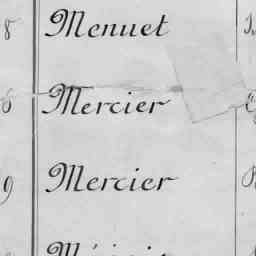 8 Menuet
6 Mercier
9 Mercier